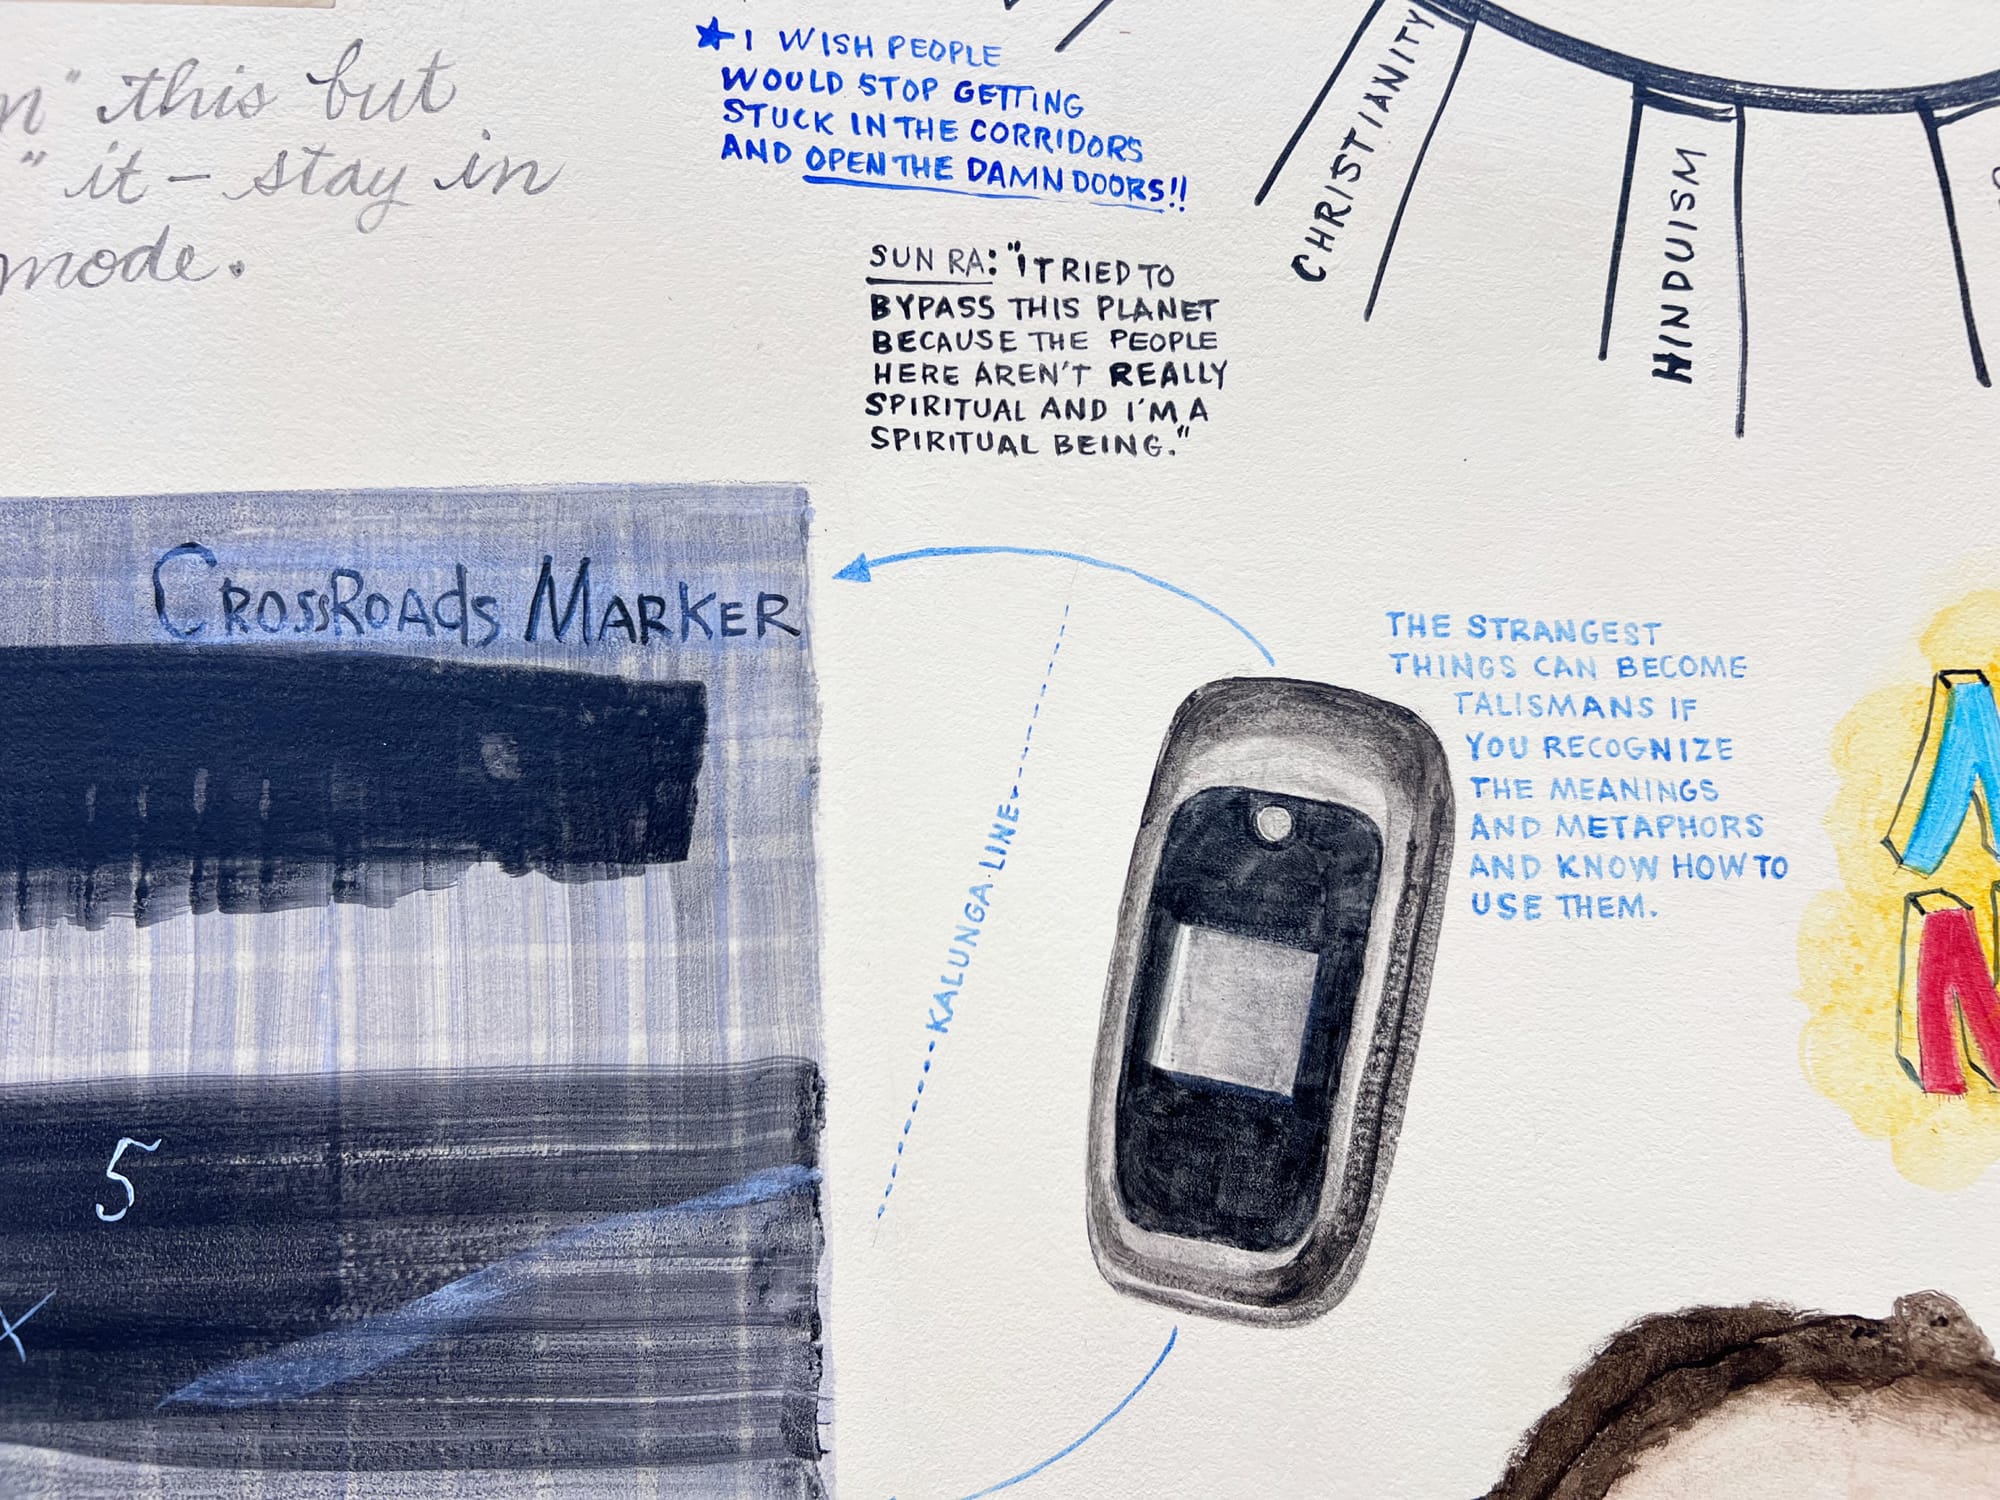 this but
" it – stay in
mode.
★ I WISH PEOPLE
WOULD STOP GETTING
STUCK IN THE CORRIDORS
AND OPEN THE DAMN DOORS!!
SUN RA: "I TRIED TO
BYPASS THIS PLANET
BECAUSE THE PEOPLE
HERE AREN'T REALLY
SPIRITUAL AND I'M A
SPIRITUAL BEING."
CHRISTIANITY
HINDUISM
CROSSROADS MARKER
5
x
KALUNGA LINE
THE STRANGEST
THINGS CAN BECOME
TALISMANS IF
YOU RECOGNIZE
THE MEANINGS
AND METAPHORS
AND KNOW HOW TO
USE THEM.